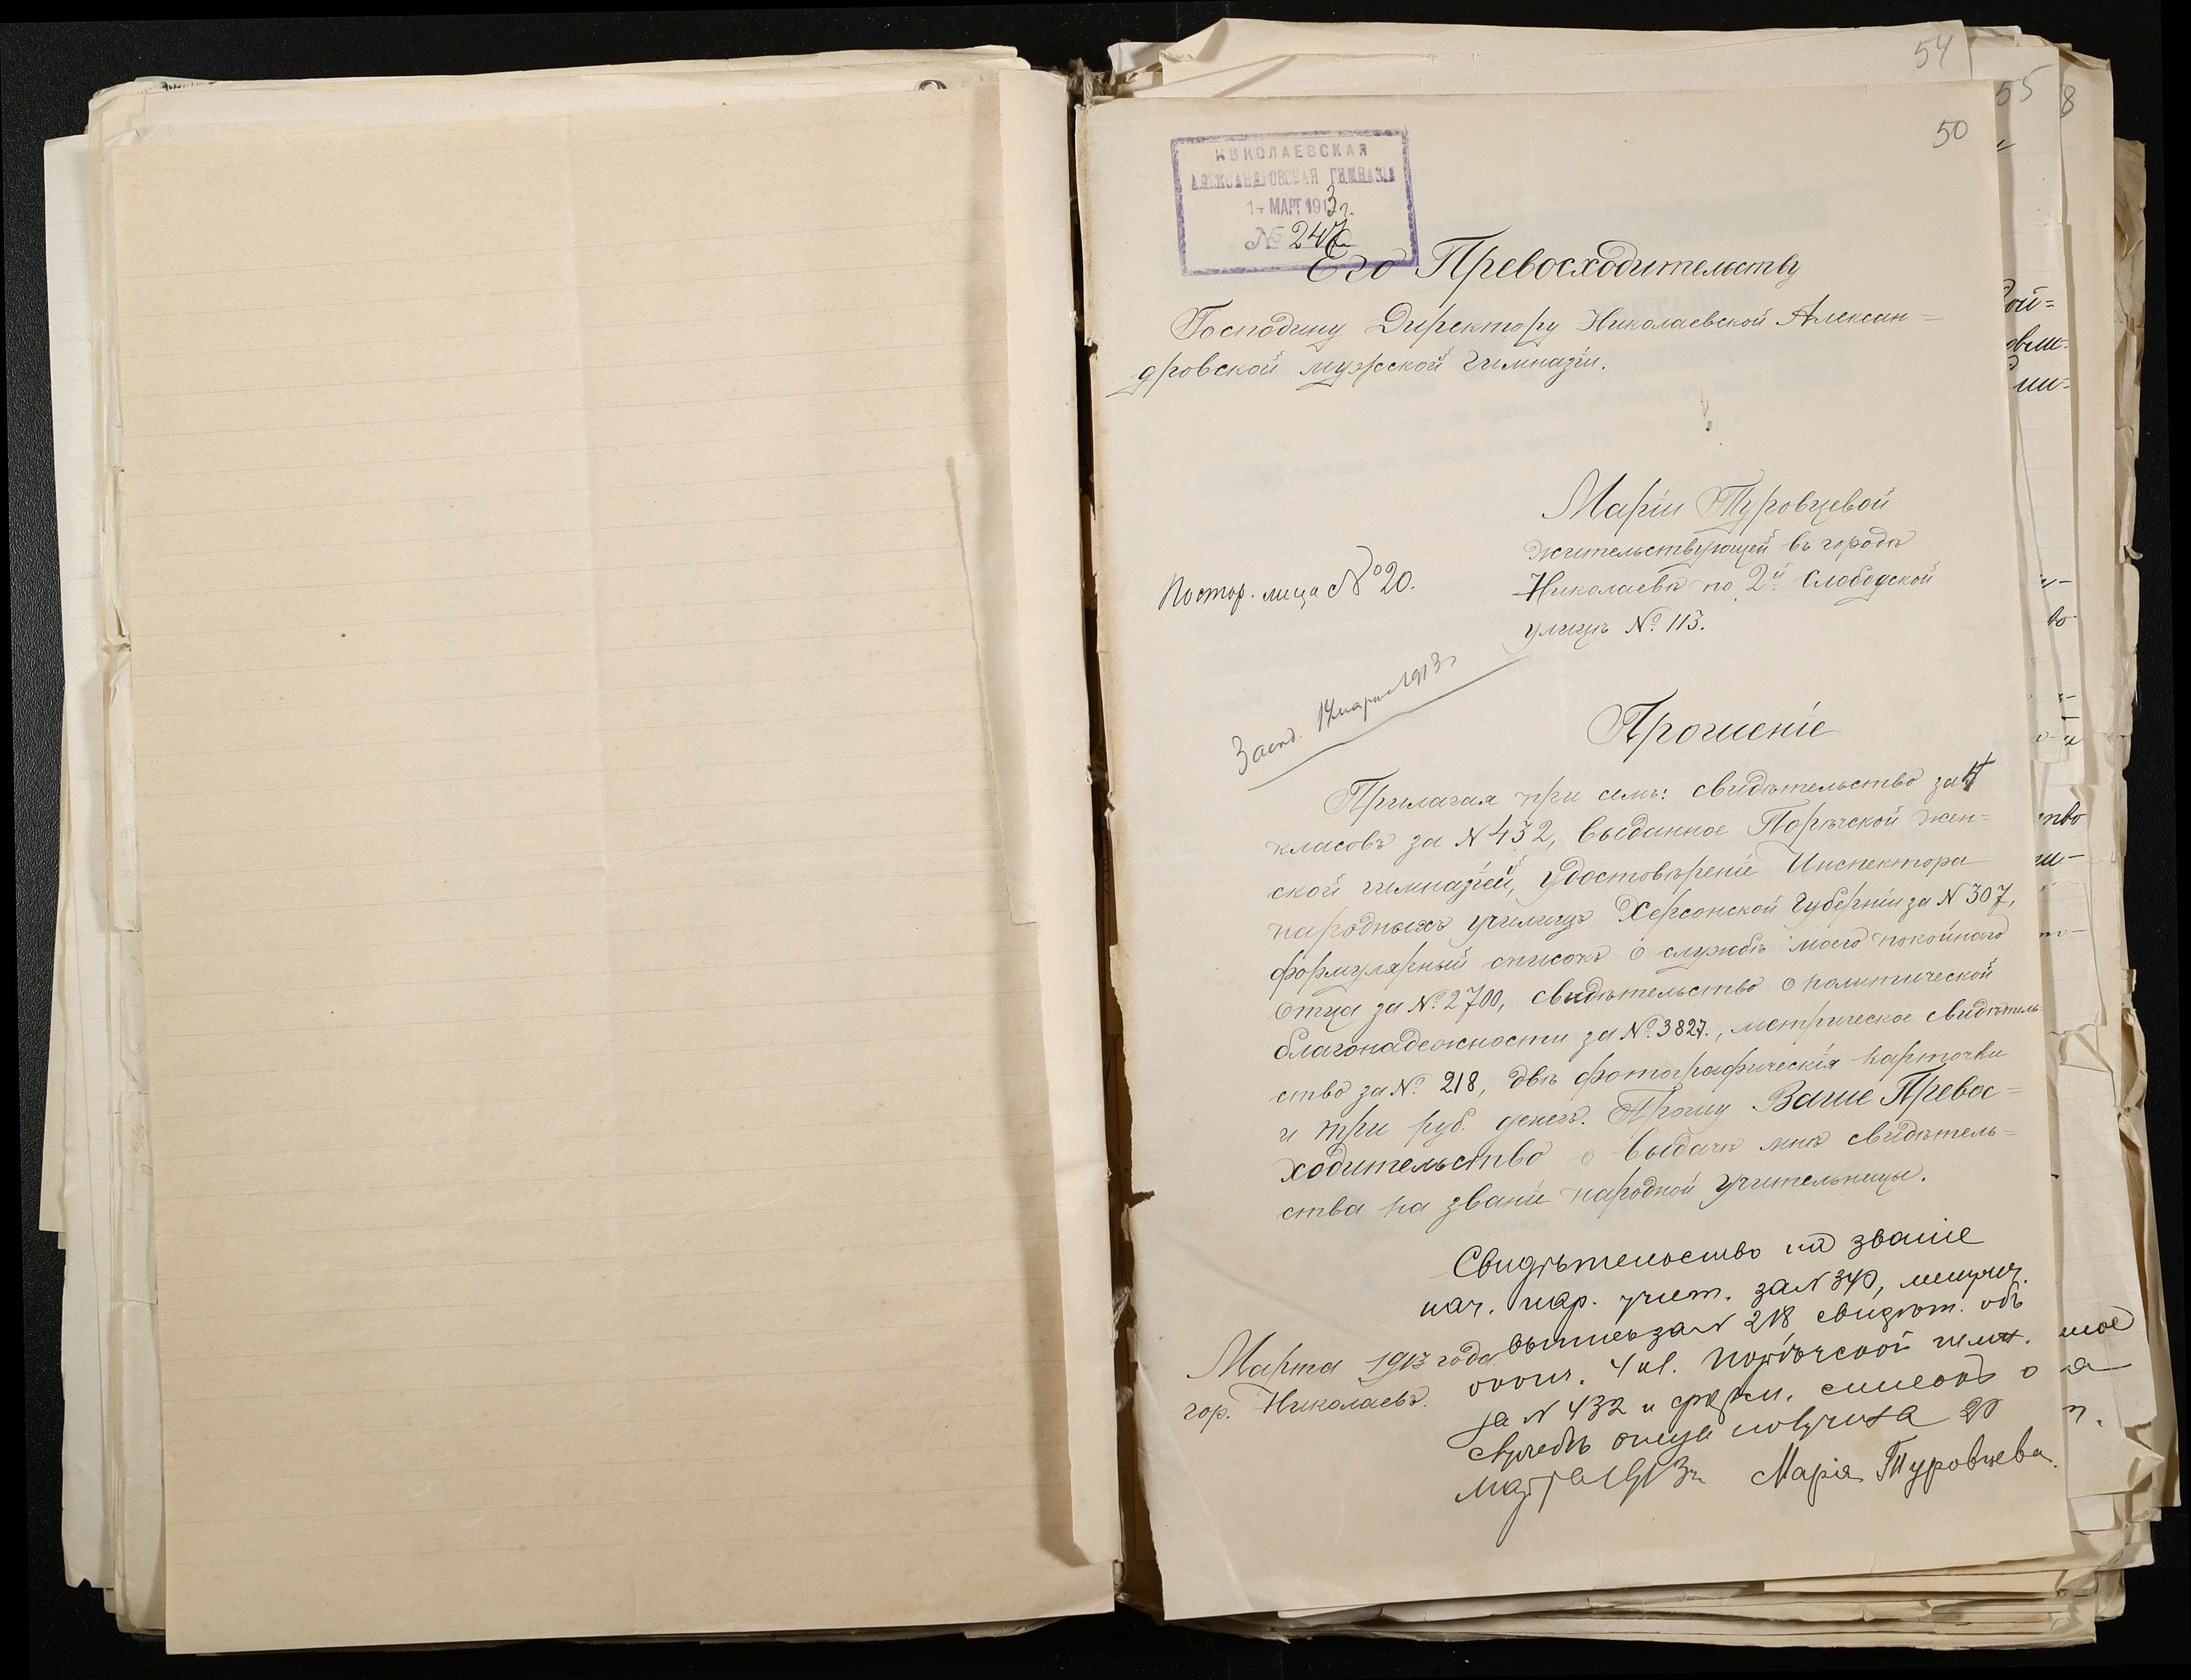 54
55
8
50
НИКОЛАЕВСКАЯ
АЛЕКСАНДРОВСКАЯ ГИМНАЗІЯ
14 МАРТ 1913 г.
№ 247
Его Превосходительству
Господину Директору Николаевской Алексан=
дровской мужской гимназіи.
Маріи Туровцевой
жительствующей въ городѣ
Николаевѣ по 2й Слободской
улицѣ № 113.
Постор. лица № 20.
Засѣд. 14 марта 1913 г.
Прошеніе
Прилагая при семъ: свидѣтельство за 4
класовъ за N 432, выданное Порѣчской жен=
ской гимназіей, удостовѣреніе Инспектора
народныхъ училищъ Херсонской Губерніи за N 307,
формулярный списокъ о службѣ моего покойнаго
отца за № 2700, свидѣтельство о политической
благонадежности за № 3827., метрическое свидѣтель
ство за № 218, двѣ фотографическія карточки
и три руб. денегъ. Прошу Ваше Превос=
ходительство о выдачѣ мнѣ свидѣтель=
ства на званіе народной учительницы.
Свидѣтельство на званіе
нач. нар. учит. за N 340, метрич.
выпись за N 218 свидѣт. объ
оконч. 4 кл. Порѣчской гимн.
за N 432 и форм. списокъ о
службѣ отца получила 20
марта 1913 г. Марія Туровцева.
Марта 1913 года
гор. Николаевъ.